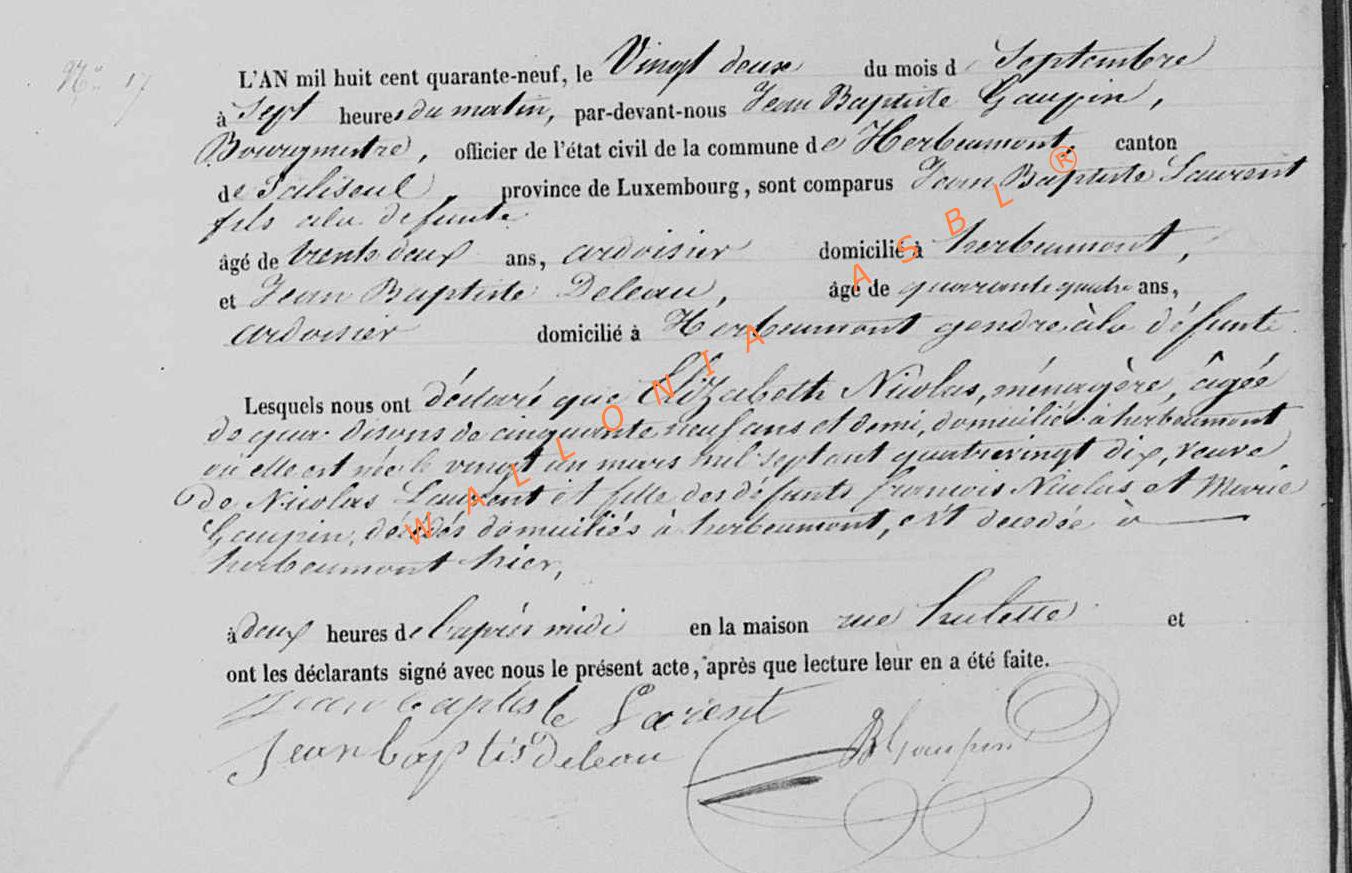 N° 17
L'AN mil huit cent quarante-neuf, le Vingt deux du mois d Septembre
à Sept heures du matin, par-devant-nous Jean Baptiste Gaupin,
Bourgmestre, officier de l'état civil de la commune de Herbeumont, canton
de Paliseul, province de Luxembourg, sont comparus Jean Baptiste Laurent
fils à la défunte
âgé de trente deux ans, ardoisier domicilié à herbeumont,
et Jean Baptiste Deleau, âgé de quarante quatre ans,
ardoisier domicilié à Herbeumont gendre à la défunte
Lesquels nous ont déclaré que Elizabeth Nicolas, ménagère, âgée
de quar disons de cinquante neuf ans et demi, domiciliée à herbeumont
où elle est née le vingt un mars mil sept cent quatrevingt dix, veuve
de Nicolas Laurent et fille des défunts françois Nicolas et Marie
Gaupin, décédés domiciliés à herbeumont, est decédée à
herbeumont hier,
à deux heures de l'après midi en la maison rue hulette et
ont les déclarants signé avec nous le présent acte, après que lecture leur en a été faite.
Jean baptiste Lorent
Jean baptis deleau
JB Gaupin
WALLONIA ASBL ®